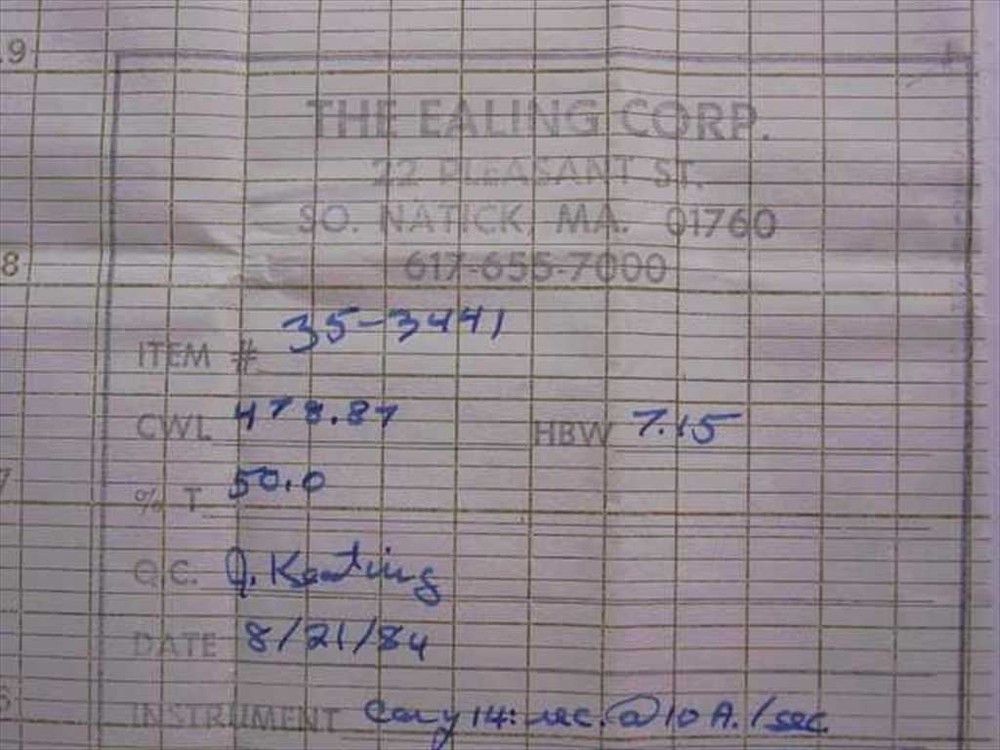 9
THE EALING CORP.
22 PLEASANT ST.
SO. NATICK, MA. 01760
8
617-655-7000
ITEM # 35-3441
CWL 478.87 HBW 7.15
7
% T 50.0
Q.C. J. Keating
DATE 8/21/84
6
INSTRUMENT Cary 14: rec. @ 10 A./sec.